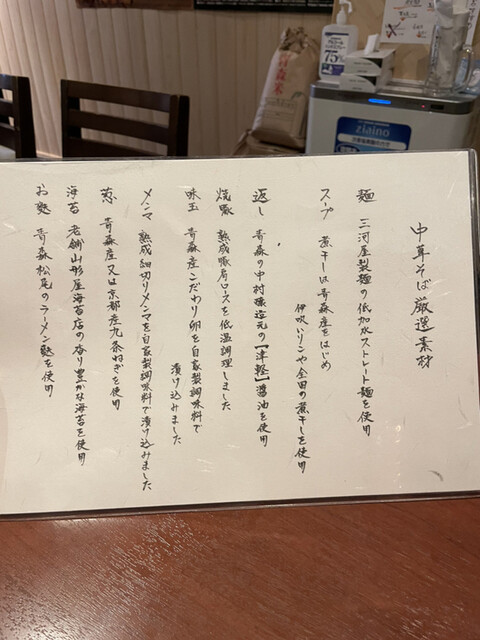 中華そば厳選素材
麺 三河屋製麺の低加水ストレート麺を使用
スープ 煮干しは青森産をはじめ
伊吹いりこや全国の煮干しを使用
返し 青森の中村醸造元の【津軽】醤油を使用
焼豚 熟成豚肩ロースを低温調理しました
味玉 青森産こだわり卵を自家製調味料で
漬け込みました
メンマ 熟成細切りメンマを自家製調味料で漬け込みました
葱 青森産又は京都産九条ねぎを使用
海苔 老舗山形屋海苔店の香り豊かな海苔を使用
お麩 青森松尾のラーメン麩を使用
青森米
アルコール
75%
ziaino